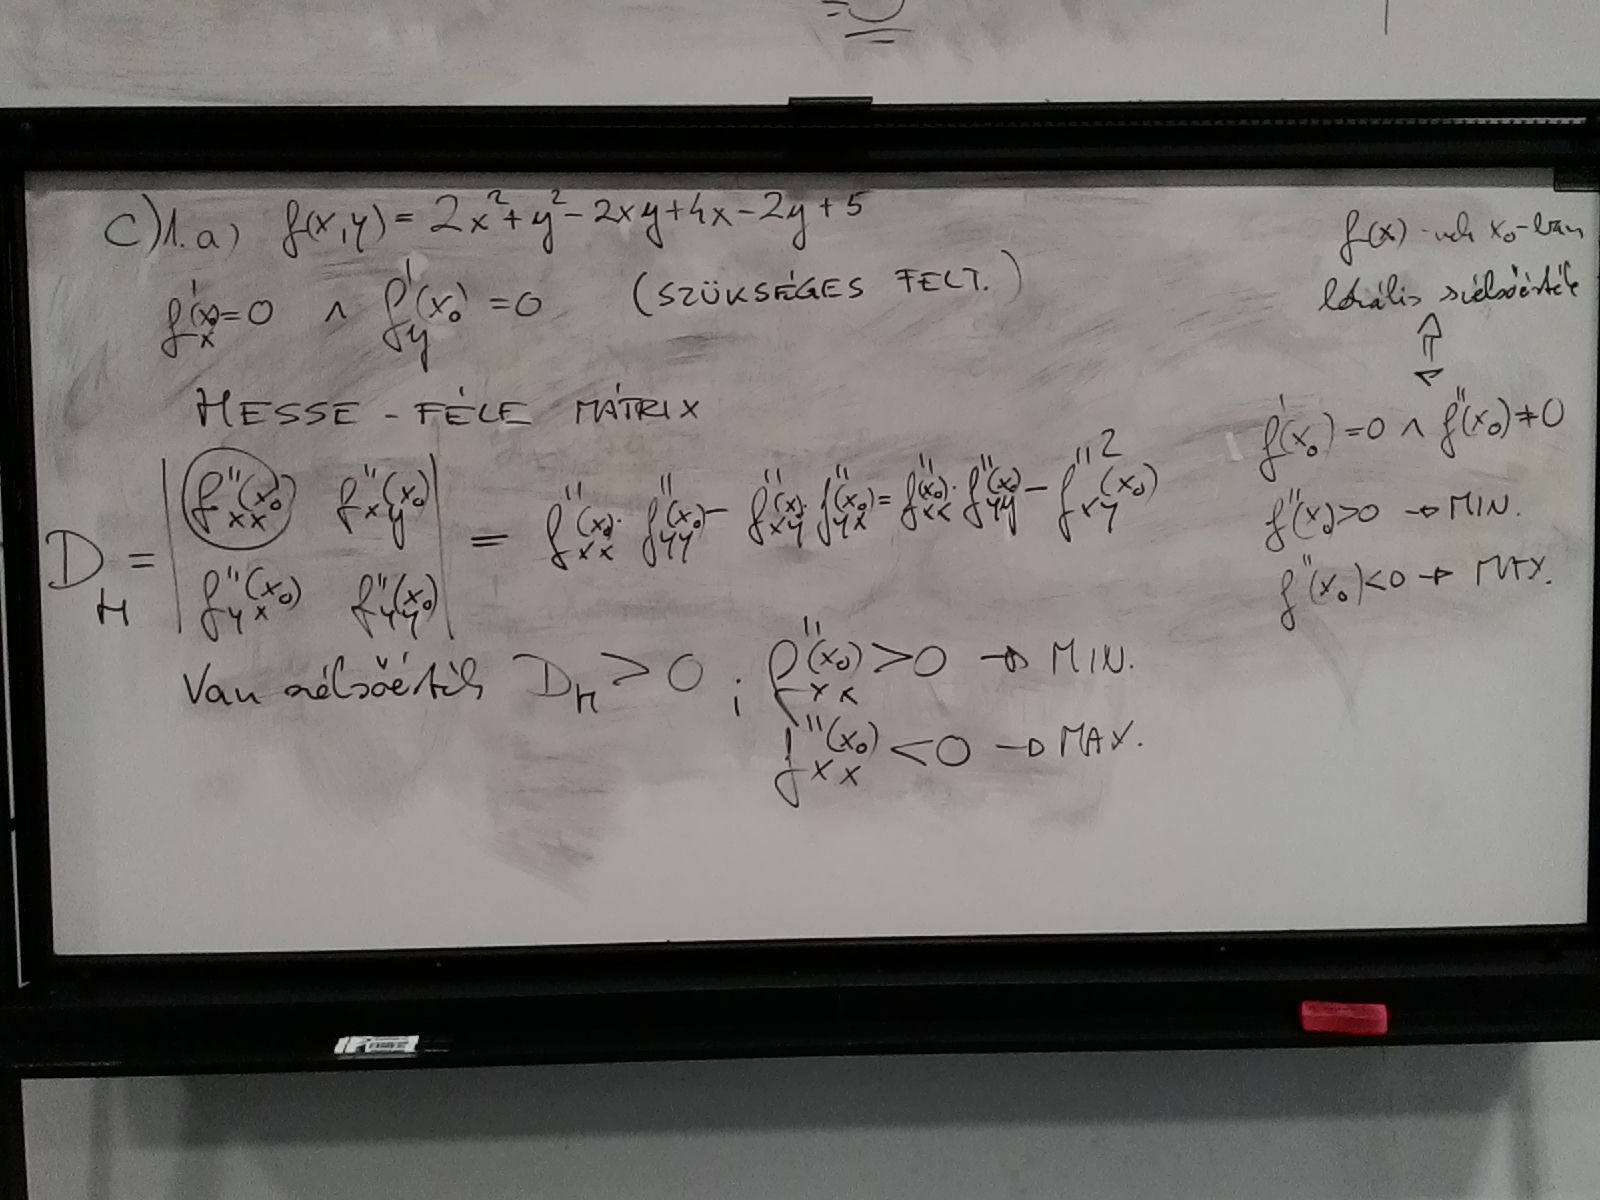 C)1.a) f(x,y) = 2x² + y² - 2xy + 4x - 2y + 5
f'x(x₀) = 0 ∧ f'y(x₀) = 0 (SZÜKSÉGES FELT.)
HESSE - FÉLE MÁTRIX
D_H = | f''xx(x₀) f''xy(x₀) | = f''xx(x₀) · f''yy(x₀) - f''xy(x₀) · f''yx(x₀) = f''xx(x₀) · f''yy(x₀) - f''²xy(x₀)
| f''yx(x₀) f''yy(x₀) |
Van szélsőérték D_H > 0 ; f''xx(x₀) > 0 → MIN.
f''xx(x₀) < 0 → MAX.
f(x)-nek x₀-ban
lokális szélsőérték
⇕
f'(x₀) = 0 ∧ f''(x₀) ≠ 0
f''(x₀) > 0 → MIN.
f''(x₀) < 0 → MAX.